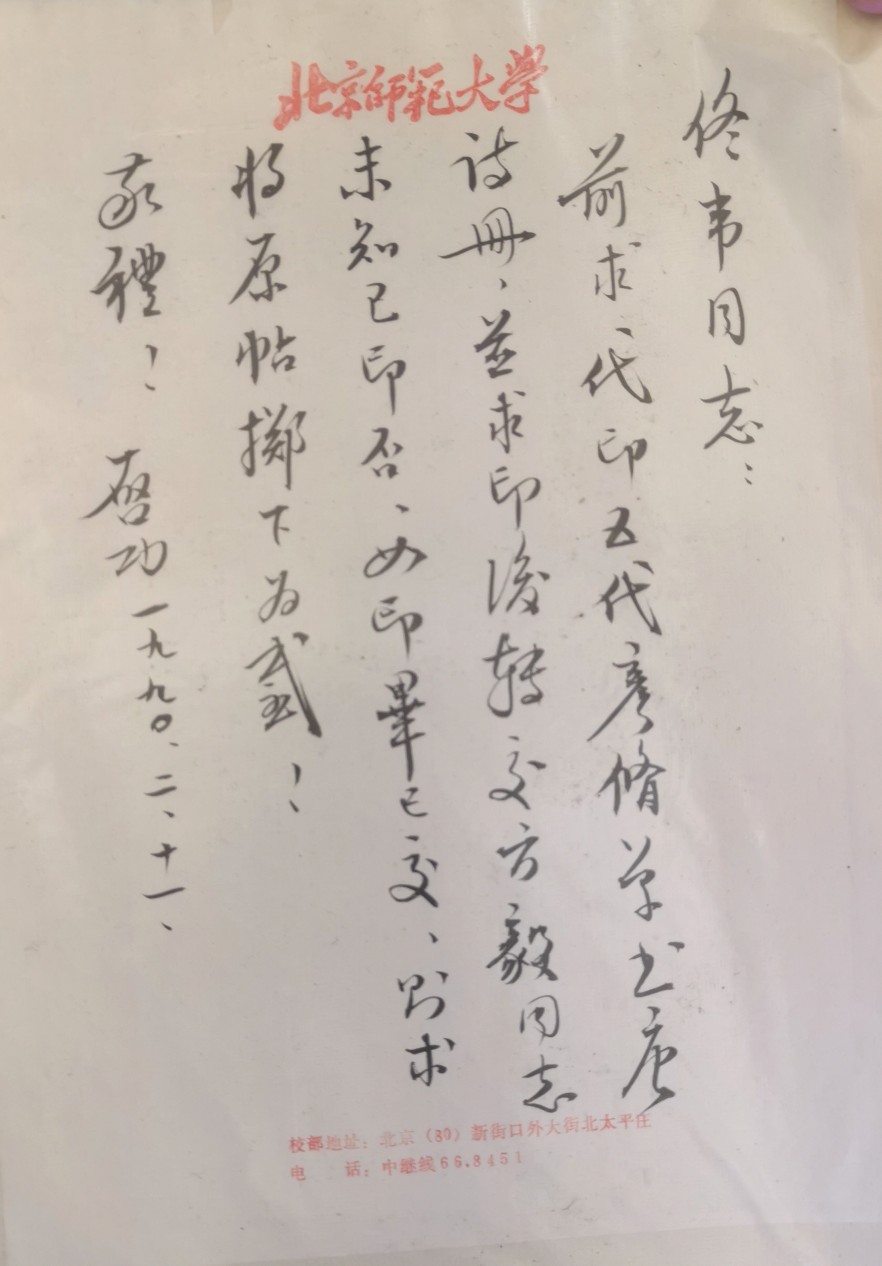 北京师範大学
佟韦同志：
前求、代印五代彦脩草书唐
诗册、並求印後转交方毅同志
未知已印否、如印畢已交、则求
将原帖掷下为感！
敬禮！ 启功 一九九〇、二、十一、
校部地址：北京（80）新街口外大街北太平庄
电 话：中继线66.8451